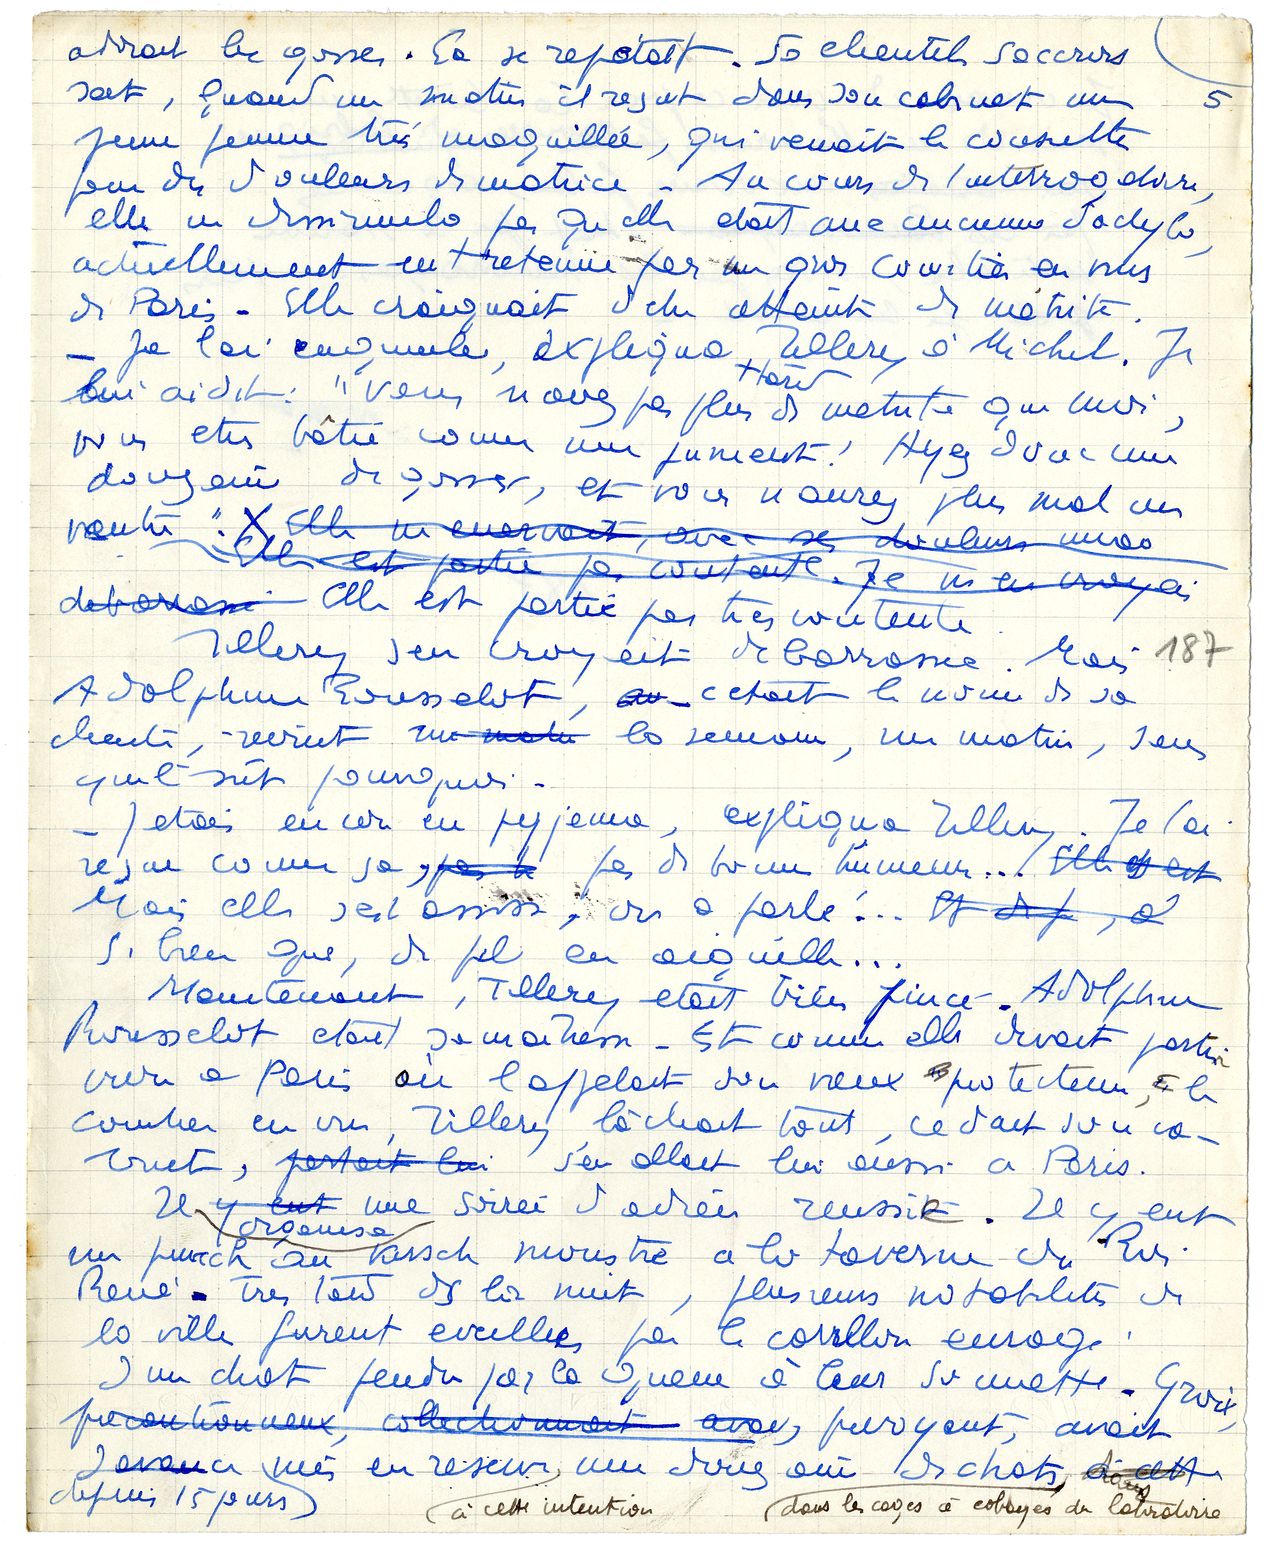 adroit les gosses. Ça se répétait. Sa clientèle s'accrois
sait, quand un matin il reçut dans son cabinet une
jeune femme très maquillée, qui venait le consulter
pour des douleurs de matrice - Au cours de l'interrogatoire,
elle ne dissimula pas qu'elle était une ancienne dactylo,
actuellement entretenue par un gros courtier en vins
de Paris - Elle craignait d'être atteinte de métrite.
- Je l'ai engueulée, expliqua Tillerey à Michel. Je
lui ai dit : "Vous n'avez pas plus de métrite que moi,
vous êtes bâtie comme une jument ! Ayez donc une
douzaine de gosses, et vous n'aurez plus mal au
ventre". Elle m'énervait, avec ses douleurs
Elle est partie pas contente. Je m'en croyais
débarrassé Elle est partie pas très contente
Tillerey s'en croyait débarrassé. Mais 187
Adolphine Rousselot, c'était le nom de sa
cliente, revint un matin la semaine, un matin, sans
qu'il sût pourquoi -
- J'étais encore en pyjama, expliqua Tillerey. Je l'ai
reçue comme ça, pas de bonne humeur... Elle
Mais elle s'est assise, on a parlé !...
Si bien que, de fil en aiguille...
Maintenant, Tillerey était bien pincé - Adolphine
Rousselot était sa maîtresse - Et comme elle devait partir
vivre à Paris où l'appelait son vieux protecteur, le
courtier en vins, Tillerey lâchait tout, cédait son ca-
binet, partait lui s'en allait lui aussi à Paris.
Il y eut organisa une soirée d'adieu réussie. Il y eut
un punch au kirsch monstre à la taverne du Roi
René - Très tard dans la nuit, plusieurs notabilités de
la ville furent éveillées par le carillon enragé
d'un chat pendu par la queue à leur sonnette - Groix,
précautionneux, collectionnait prévoyant, avait
d'avance mis en réserve une douzaine de chats,
depuis 15 jours) (à cette intention (dans les cages à cobayes du laboratoire
5